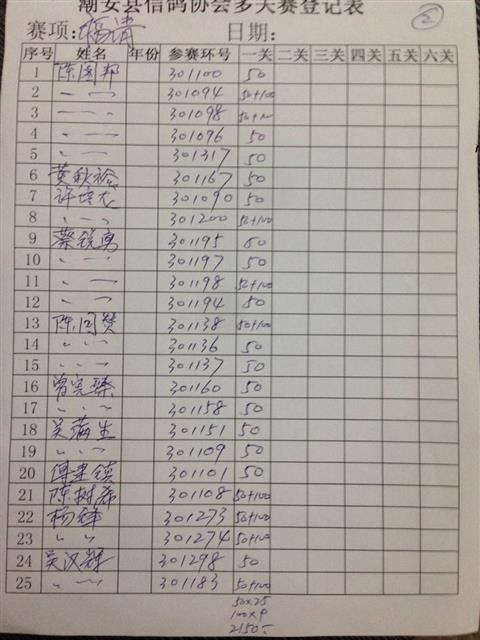 潮安县信鸽协会多关赛登记表
②
赛项: 福清 日期:
序号 姓名 年份 参赛环号 一关 二关 三关 四关 五关 六关
1 陈国邦 301100 50
2 〃 301094 50+100
3 〃 301098 50+100
4 〃 301096 50
5 〃 301317 50
6 黄秋裕 301167 50
7 许培太 301090 50
8 〃 301200 50+100
9 蔡锐勇 301195 50
10 〃 301197 50
11 〃 301198 50+100
12 〃 301194 50
13 陈国赞 301138 50+100
14 〃 301136 50
15 〃 301137 50
16 曾完 301160 50
17 〃 301158 50
18 吴满生 301151 50
19 〃 301109 50
20 傅建镇 301101 50
21 陈树希 301108 50+100
22 杨锋 301273 50+100
23 〃 301274 50+100
24 吴汉辉 301298 50
25 〃 301183 50+100
50×25
100×9
2150-